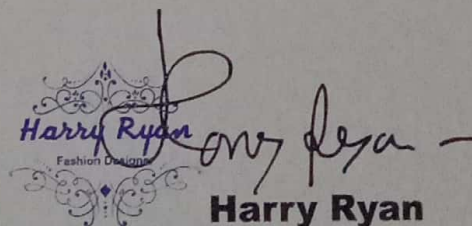 Harry Ryan
Fashion Designer
Harry Ryan
Harry Ryan